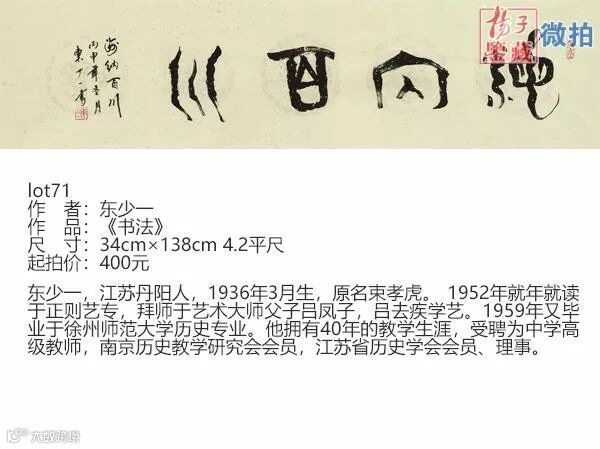 海内百川
海纳百川
丙申年冬月
东少一书
扬子
鉴藏
微拍
lot71
作 者：东少一
作 品：《书法》
尺 寸：34cm×138cm 4.2平尺
起拍价：400元
东少一，江苏丹阳人，1936年3月生，原名束孝虎。 1952年就年就读
于正则艺专，拜师于艺术大师父子吕凤子，吕去疾学艺。1959年又毕
业于徐州师范大学历史专业。他拥有40年的教学生涯，受聘为中学高
级教师，南京历史教学研究会会员，江苏省历史学会会员、理事。
大威跨境